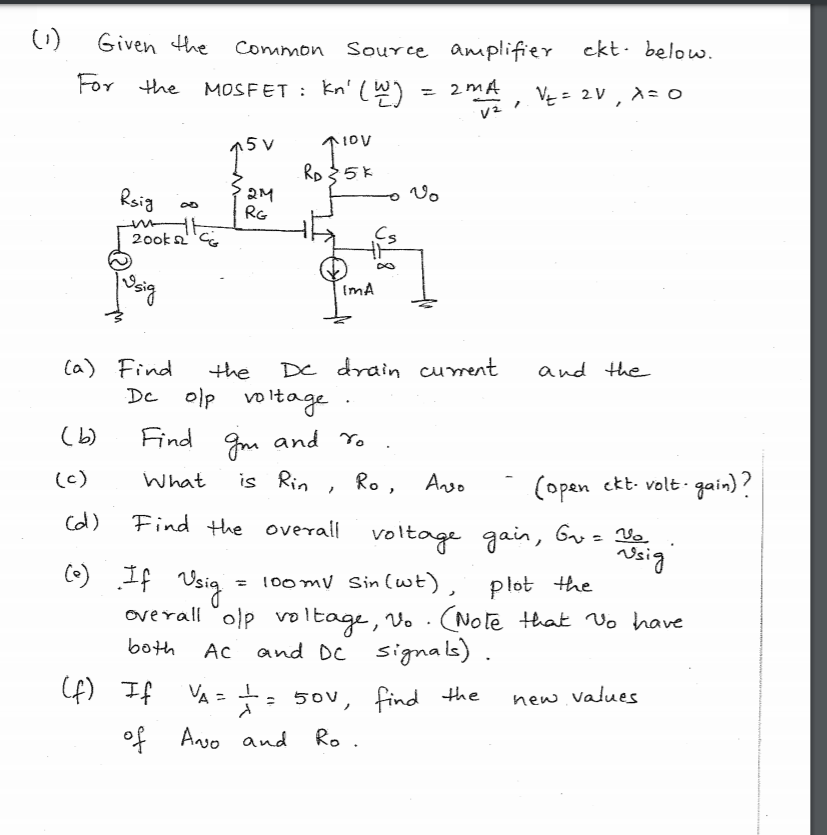 (1) Given the Common Source amplifier ckt. below.
For the MOSFET : kn' (W/L) = 2 mA/V², Vt = 2V, λ = 0
5V
10V
RD 5k
vo
Rsig
∞
2M
RG
200kΩ
CG
Cs
∞
vsig
1mA
(a) Find the DC drain current and the
DC o/p voltage .
(b) Find gm and ro .
(c) What is Rin , Ro , Avo - (open ckt. volt. gain)?
(d) Find the overall voltage gain, Gv = vo/vsig .
(e) If vsig = 100mV sin(ωt) , plot the
overall o/p voltage, vo . (Note that vo have
both AC and DC signals) .
(f) If VA = 1/λ = 50V, find the new values
of Avo and Ro .